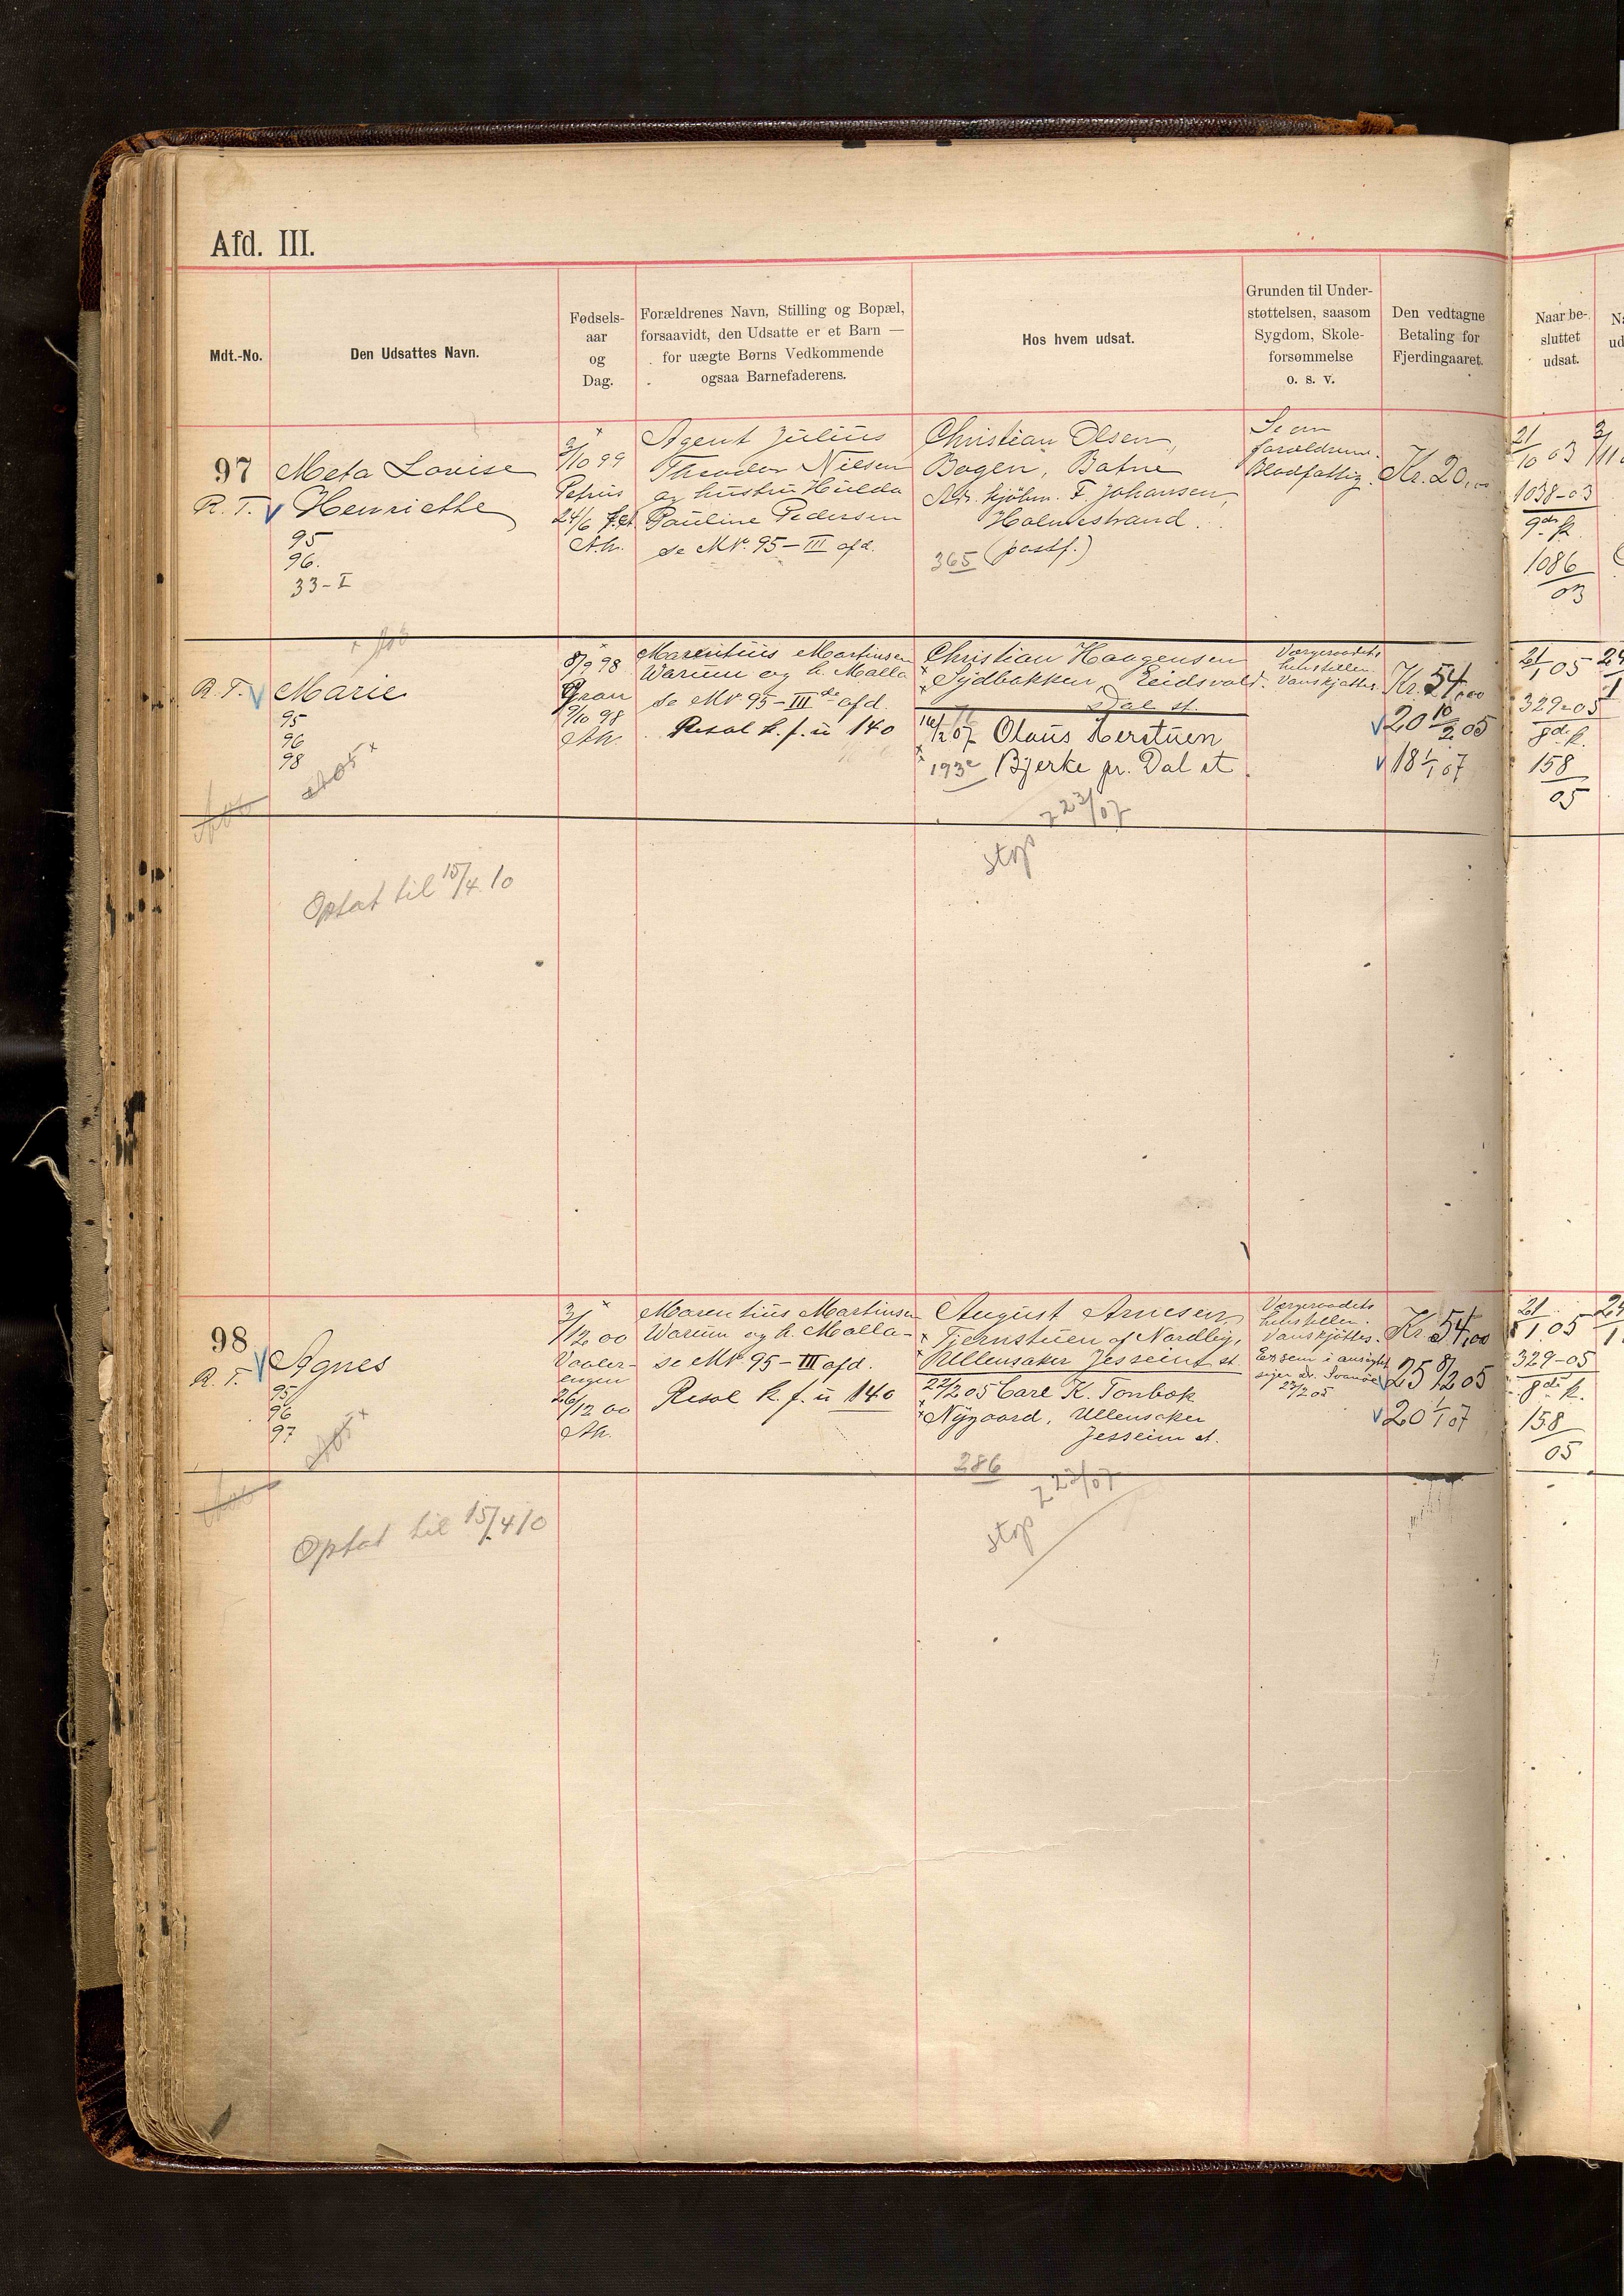 Afd. III.
Mdt.-No.
Den Udsattes Navn.
Fødsels-
aar
og
Dag.
Forældrenes Navn, Stilling og Bopæl,
forsaavidt, den Udsatte er et Barn —
for uægte Børns Vedkommende
ogsaa Barnefaderens.
Hos hvem udsat.
Grunden til Under-
støttelsen, saasom
Sygdom, Skole-
forsømmelse
o. s. v.
Den vedtagne
Betaling for
Fjerdingaaret.
Naar be-
sluttet
udsat.
97
R. T. v
Meta Lovise
Henriette
95
96.
33-I
3/10 99
Petrus
24/6
Ak.
Agent Julius
Theodor Nilsen
og hustru Hulda
Pauline Pedersen
se M№. 95 – III afd.
Christian Olsen,
Bogen, Botne
Adr. kjøbm. F. Johansen,
Holmestrand.
365 (postf.)
Se om
forældrene.
Blodfattig.
Kr. 20,00
21/10 03
1038-03
gdk.
1086
03
R. T. v
Marie
95
96
98
8/9 98
Gran
9/10 98
Ak.
Marentius Martinsen
Warum og h. Malla
se M№ 95 – III de afd.
Resol k. f. u 140
Christian Haagensen
Sydbakken, Eidsvold.
Dal st.
Olaus Herstuen
193 Bjerke pr. Dal st
z 23/07
stop
Værgeraadets
Vanskjøttes.
Kr. 54,00
v 20 10/2 05
v 18 1/1 07
21/1 05
329-05
gdk.
158
05
Optat til 15/4 10
98
R. T. v
Agnes
95
96
97
3/12 00
Vaaler-
engen
26/12 00
Ak.
Marentius Martinsen
Warum og h. Malla-
se M№ 95 – III afd.
Resol k. f. u 140
August Arnesen
Tjernstuen af Nordbig,
Ullensaker Jesseim st.
22/2 05 Carl K. Tonbok
Nygaard, Ullensaker
Jesseim st.
286
z 23/07
stop
Værgeraadets
Vanskjøttes.
Exsem i ansigtet
siger dr.
22/2 05
Kr. 54,00
25 8/12 05
v 20 1/1 07
21/1 05
329-05
gdk.
158
05
Optat til 15/4 10